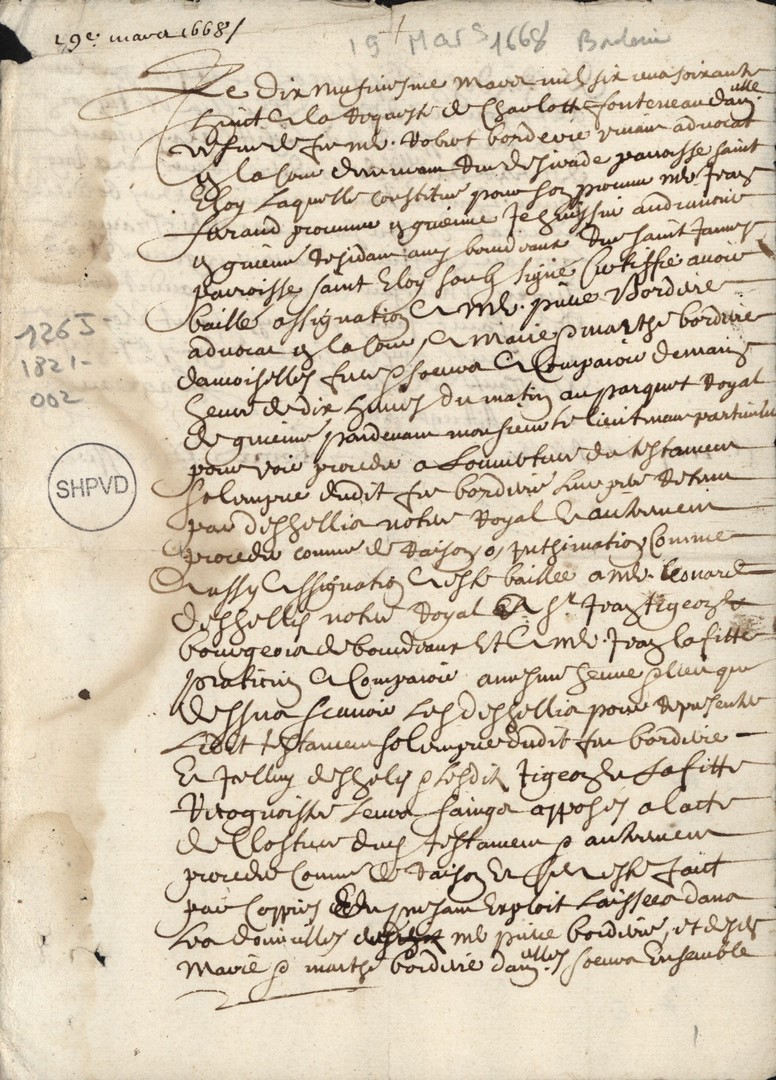 19e mars 1668/
15 Mars 1668 Borderie
Le dix neufviesme mars mil six cens soixante
huict a la requeste de Charlotte fonteneau dam.elle
vefve de feu Me. borderie vivant advocat
en la Cour demeurant rue parroisse saint
Eloy laquelle constitue pour son procureur Me Jean
procureur en guienne Je huissier audiancier
en guienne residant au bourdeaux rue saint James
parroisse saint Eloy soubz signé Certiffie avoir
baille assignation a Me. pierre Borderie
advocat en la Cour, a Marie & marthe borderie
damoiselles frere & soeurs a Comparoir demain
heure de dix heures du matin au parquet Royal
de guienne pardevant monsieur le lieutenant particulier
pour voir proceder a Louverture du testament
solempne dudit feu borderie leur pere Retenu
par deshellis notere Royal & autrement
proceder comme de raison o inthimation Comme
aussy assignation a este baillee a Me. leonard
deshellis notere Royal sr Jean
bourgeois de bourdeaux Et a Me. Jean lafitte
praticien a Comparoir a mesme heure & lieu que
dessus scavoir Ledeshellis pour representer
Ledit testament solempne dudit feu borderie
Et Icelluy deshelis & lesdits Lafitte
Recognoistre leurs saings apposes a lacte
de Closture dudit testament & autrement
proceder Comme de Raison Et a este faict
par Coppies du presant Exploit Laissees dans
Les domicilles me pierre borderie, et desdites
Marie & marthe borderie dam.elles soeurs Ensemble
1265-
1821-
002
SHPVD
1